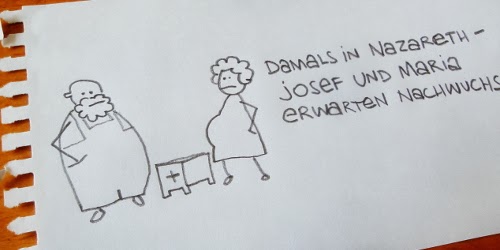 DAMALS IN NAZARETH -
JOSEF UND MARIA
ERWARTEN NACHWUCHS